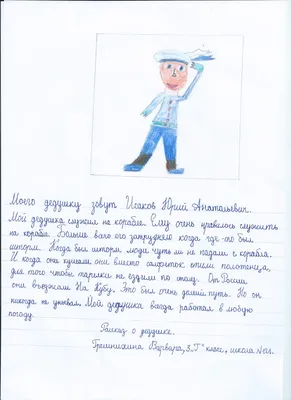 Моего дедушку зовут Исаков Юрий Анатольевич.
Мой дедушка служил на корабле. Ему очень нравилось служить
на корабле. Больше всего его затрудняло когда где-то был
шторм. Когда был шторм люди чуть ли не падали с корабля.
И когда они кушали они вместо салфеток стели полотенца,
для того чтобы тарелки не ездили по столу. От России
они выезжали На Кубу. Это был очень далёкий путь. Но он
никогда не унывал. Мой дедушка всегда работал в любую
погоду.
Рассказ о дедушке.
Гремихина Варвара, 3 "Г" класс, школа